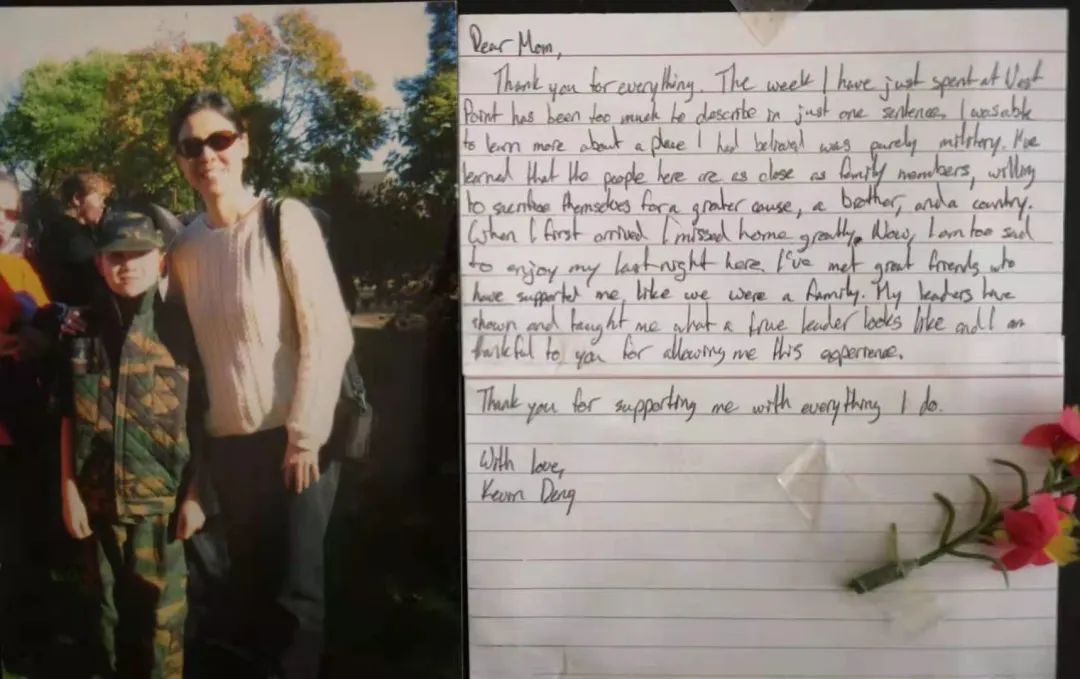 Dear Mom,
Thank you for everything. The week I have just spent at West
Point has been too much to describe in just one sentence. I was able
to learn more about a place I had believed was purely military. I've
learned that the people here are as close as family members, willing
to sacrifice themselves for a greater cause, a brother, and a country.
When I first arrived I missed home greatly. Now, I am too sad
to enjoy my last night here. I've met great friends who
have supported me, like we were a family. My leaders have
shown and taught me what a true leader looks like and I am
thankful to you for allowing me this experience.
Thank you for supporting me with everything I do.
With love,
Kevin Deng